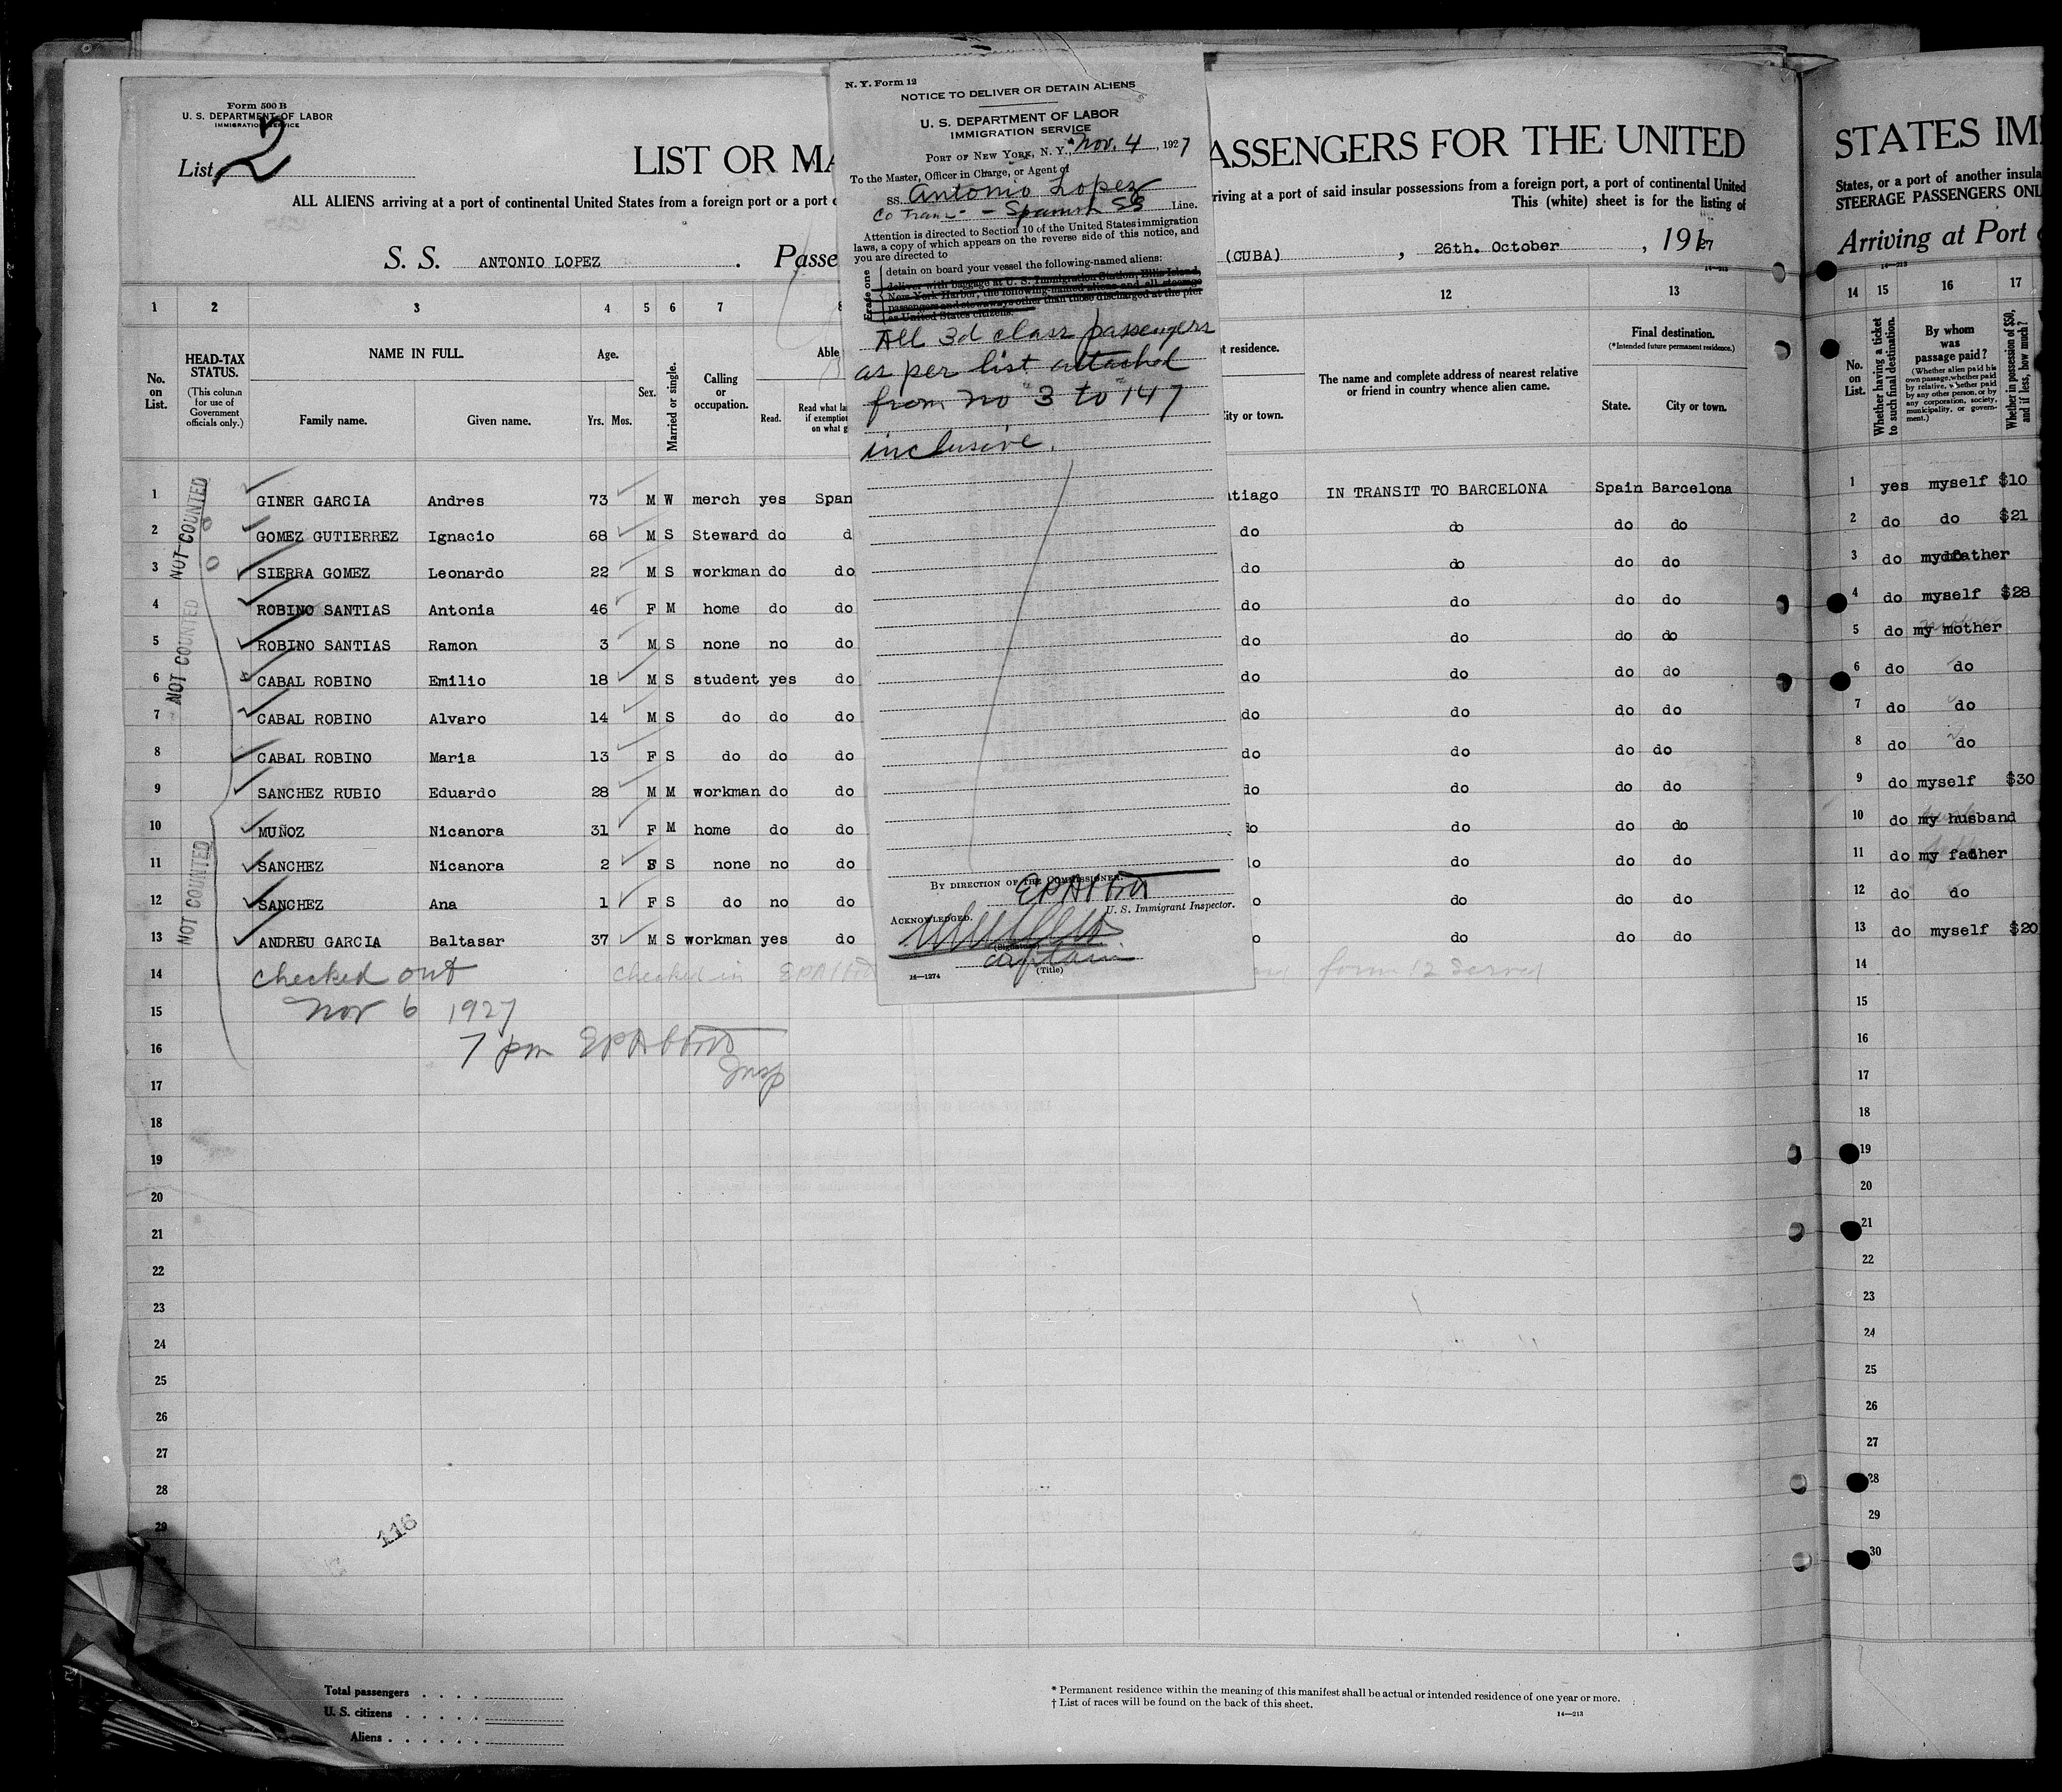 Form 500 B
U. S. DEPARTMENT OF LABOR
IMMIGRATION SERVICE
List 2
LIST OR MA
ASSENGERS FOR THE UNITED
ALL ALIENS arriving at a port of continental United States from a foreign port or a port o
riving at a port of said insular possessions from a foreign port, a port of continental United
This (white) sheet is for the listing of
S. S. ANTONIO LOPEZ . Passe
(CUBA) , 26th. October , 1927
N. Y. Form 12
NOTICE TO DELIVER OR DETAIN ALIENS
U. S. DEPARTMENT OF LABOR
IMMIGRATION SERVICE
PORT OF NEW YORK, N. Y., Nov. 4, 1927
To the Master, Officer in Charge, or Agent of
SS. Antonio Lopez
Co Tran - Spanish SS Line.
Attention is directed to Section 10 of the United States immigration
laws, a copy of which appears on the reverse side of this notice, and
you are directed to
Erase one
detain on board your vessel the following-named aliens:
deliver with baggage at U. S. Immigration Station, Ellis Island,
New York Harbor, the following-named aliens and all steerage
passengers and stowaways other than those discharged at the pier
as United States citizens:
All 3d class passengers
as per list attached
from no "3 to" 147
inclusive.
BY DIRECTION OF THE COMMISSIONER.
EPAbbott
U. S. Immigrant Inspector.
ACKNOWLEDGED.
(Signature)
captain
(Title)
16—1274
1 2 3 4 5 6 7 8 12 13
No. on List.
HEAD-TAX STATUS.
(This column for use of Government officials only.)
NAME IN FULL.
Family name. Given name.
Age.
Yrs. Mos.
Sex.
Married or single.
Calling or occupation.
Able
Read.
Read what la
if exemptio
on what g
t residence.
ity or town.
The name and complete address of nearest relative
or friend in country whence alien came.
Final destination.
(*Intended future permanent residence.)
State. City or town.
1 GINER GARCIA Andres 73 M W merch yes Span tiago IN TRANSIT TO BARCELONA Spain Barcelona
2 GOMEZ GUTIERREZ Ignacio 68 M S Steward do d do do do do
3 SIERRA GOMEZ Leonardo 22 M S workman do do do do do do
4 ROBINO SANTIAS Antonia 46 F M home do do do do do do
5 ROBINO SANTIAS Ramon 3 M S none no do do do do do
6 CABAL ROBINO Emilio 18 M S student yes do do do do do
7 CABAL ROBINO Alvaro 14 M S do do do do do do do
8 CABAL ROBINO Maria 13 F S do do do do do do do
9 SANCHEZ RUBIO Eduardo 28 M M workman do do do do do do
10 MUÑOZ Nicanora 31 F M home do do do do do do
11 SANCHEZ Nicanora 2 S none no do o do do do
12 SANCHEZ Ana 1 F S do no do o do do do
13 ANDREU GARCIA Baltasar 37 M S workman yes do o do do do
14 checked out checked in EPAbbott form 12 served
15 Nov 6 1927
16 7 pm EPAbbott
Insp
17
18
19
20
21
22
23
24
25
26
27
28
29
NOT COUNTED
NOT COUNTED
NOT COUNTED
116
Total passengers
U. S. citizens
Aliens
* Permanent residence within the meaning of this manifest shall be actual or intended residence of one year or more.
† List of races will be found on the back of this sheet.
14—213
STATES IM
States, or a port of another insula
STEERAGE PASSENGERS ONL
Arriving at Port
14—213
14 15 16 17
No. on List.
Whether having a ticket to such final destination.
By whom was passage paid?
(Whether alien paid his own passage, whether paid by relative, whether paid by any other person, or by any corporation, society, municipality, or government.)
Whether in possession of $50, and if less, how much?
1 yes myself $10
2 do do $21
3 do father
4 do myself $28
5 do my mother
6 do do
7 do do
8 do do
9 do myself $30
10 do my husband
11 do my father
12 do do
13 do myself $20
14
15
16
17
18
19
20
21
22
23
24
25
26
27
28
29
30